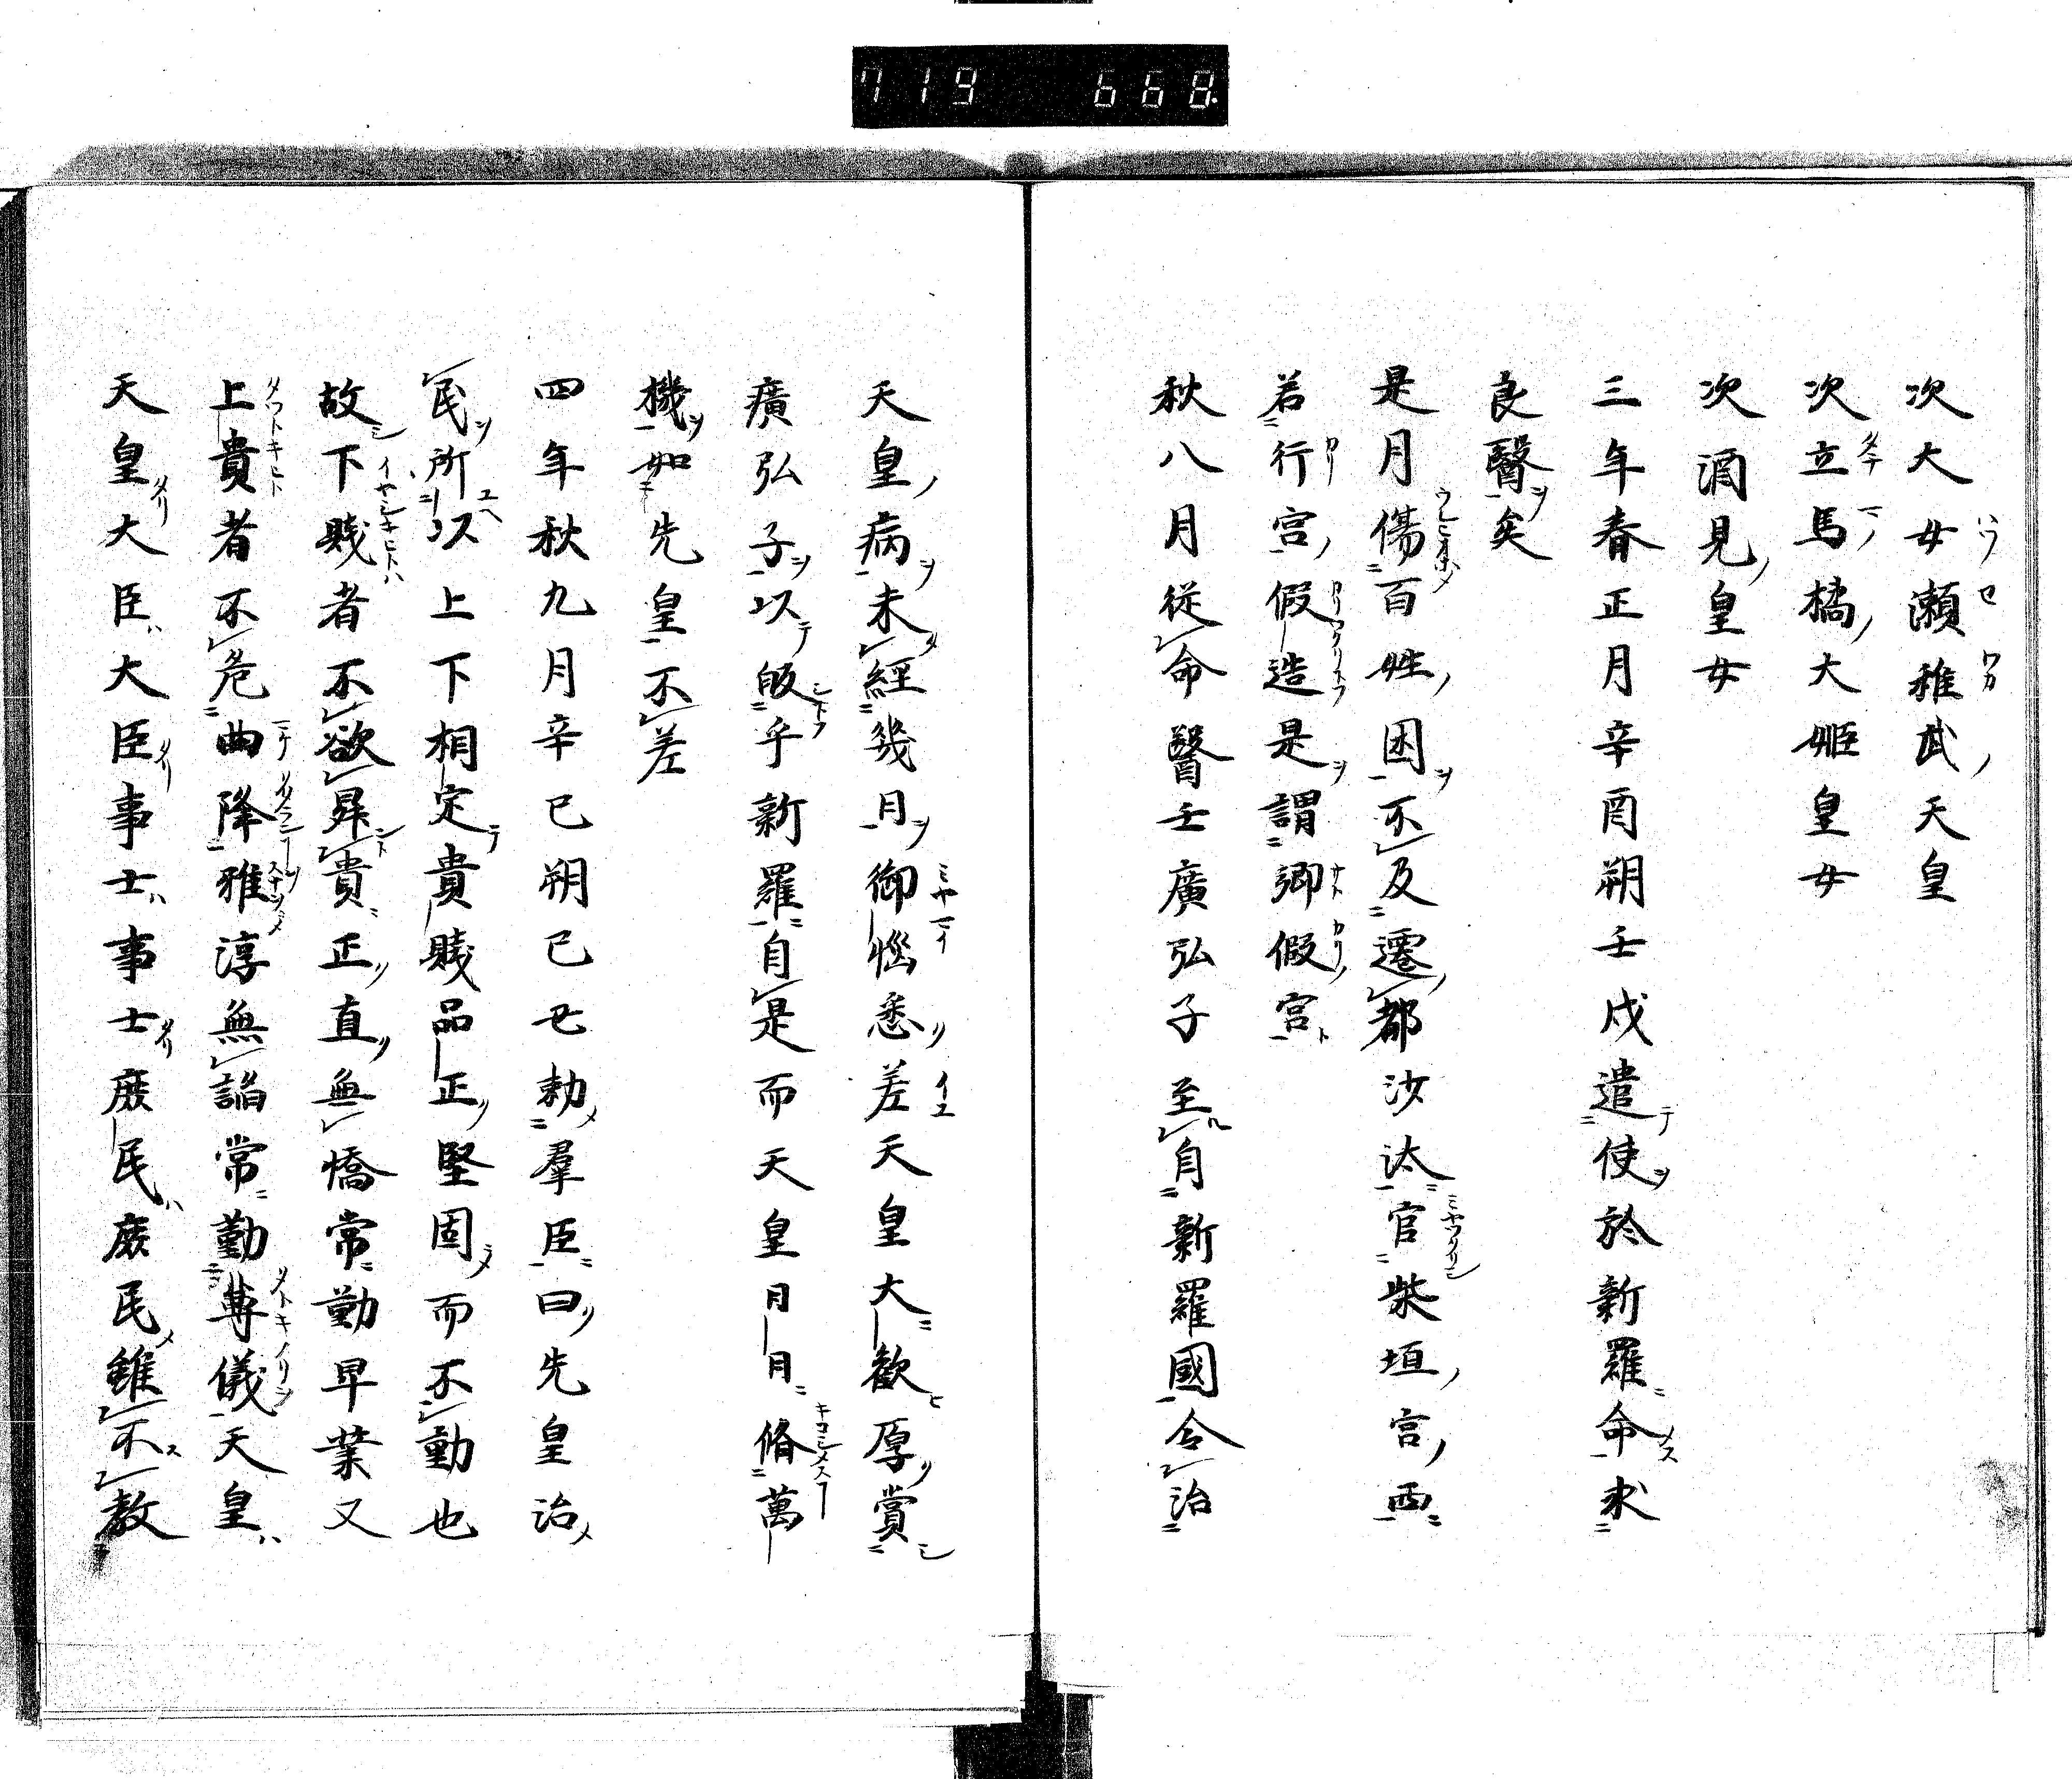 719 668
次大女瀬稚武天皇
次立馬橘大姫皇女
次酒見皇女
三年春正月辛酉朔壬戌遣使於新羅命求
良醫矣
是月傷百姓困不及遷都沙汰官柴垣宮西
若行宮假造是謂卿假宮
秋八月從命醫壬廣弘子至自新羅國令治
天皇病未經幾月御惱悉差天皇大歓厚賞
廣弘子以皈乎新羅自是而天皇月月脩萬
機如先皇不差
四年秋九月辛巳朔己丑勅羣臣曰先皇治
民所以上下相定貴賎品正堅固而不動也
故下賎者不欲昇貴正直無憍常勤早業又
上貴者不危曲降雅淳無謟常勤尊儀天皇
天皇大臣大臣事士事士庶民庶民雖不教